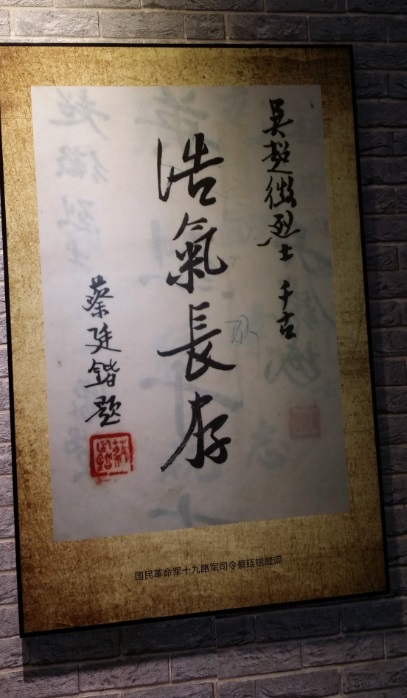 吴超徵烈士 千古
浩氣長存
蔡廷鍇题
国民革命军十九路军司令蔡廷锴题词